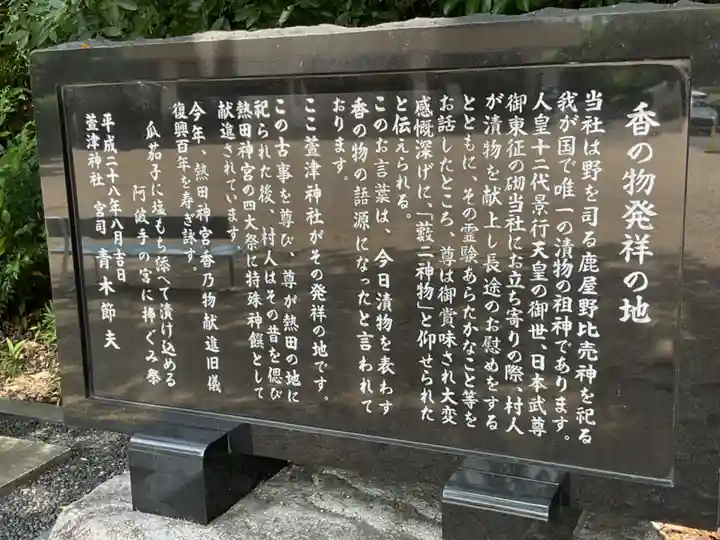 香の物発祥の地
当社は野を司る鹿屋野比売神を祀る
我が国で唯一の漬物の祖神であります。
人皇十二代景行天皇の御世、日本武尊
御東征の砌当社にお立ち寄りの際、村人
が漬物を献上し長途のお慰めをする
とともに、その霊験あらたかなこと等を
お話したところ、尊は御賞味され大変
感慨深げに、「藪二神物」と仰せられた
と伝えられる。
このお言葉は、今日漬物を表わす
香の物の語源になったと言われて
おります。
ここ萱津神社がその発祥の地です。
この古事を尊び、尊が熱田の地に
祀られた後、村人はその昔を偲び
熱田神宮の四大祭に特殊神饌として
献進されています。
今年、熱田神宮香乃物献進旧儀
復興百年を寿ぎ詠す。
瓜茄子に塩もち添へて漬け込める
阿波手の宮に捧ぐみ祭
平成二十八年八月吉日
萱津神社 宮司 青木節夫